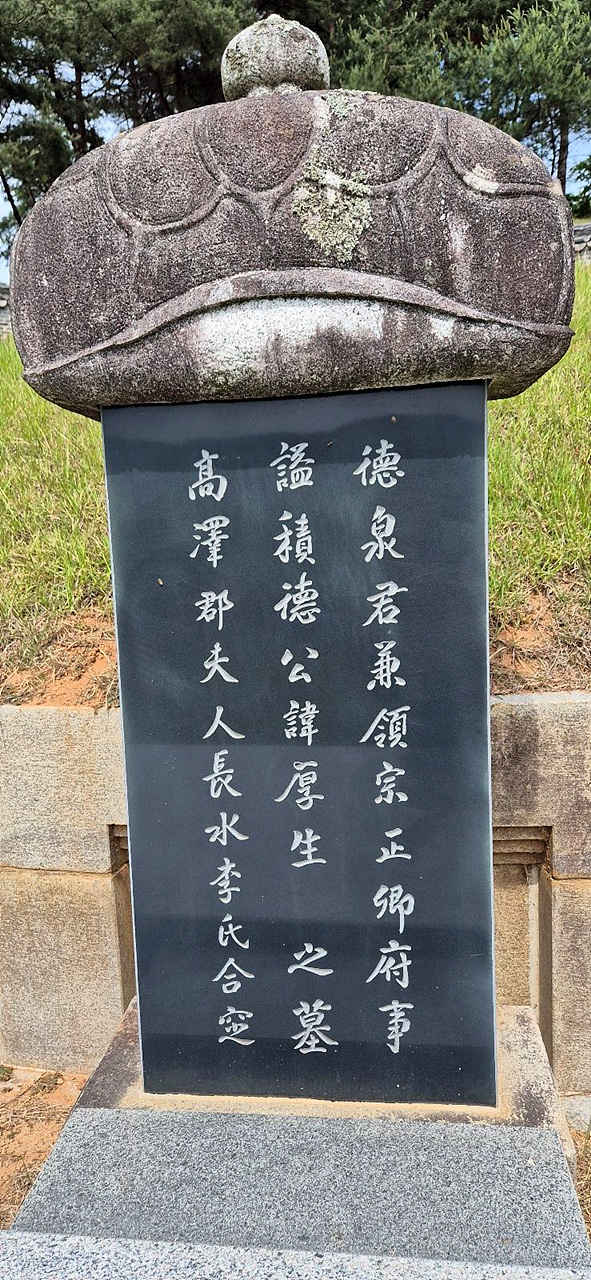 德泉君兼領宗正卿府事
謚積德公諱厚生 之墓
高澤郡夫人長水李氏合窆